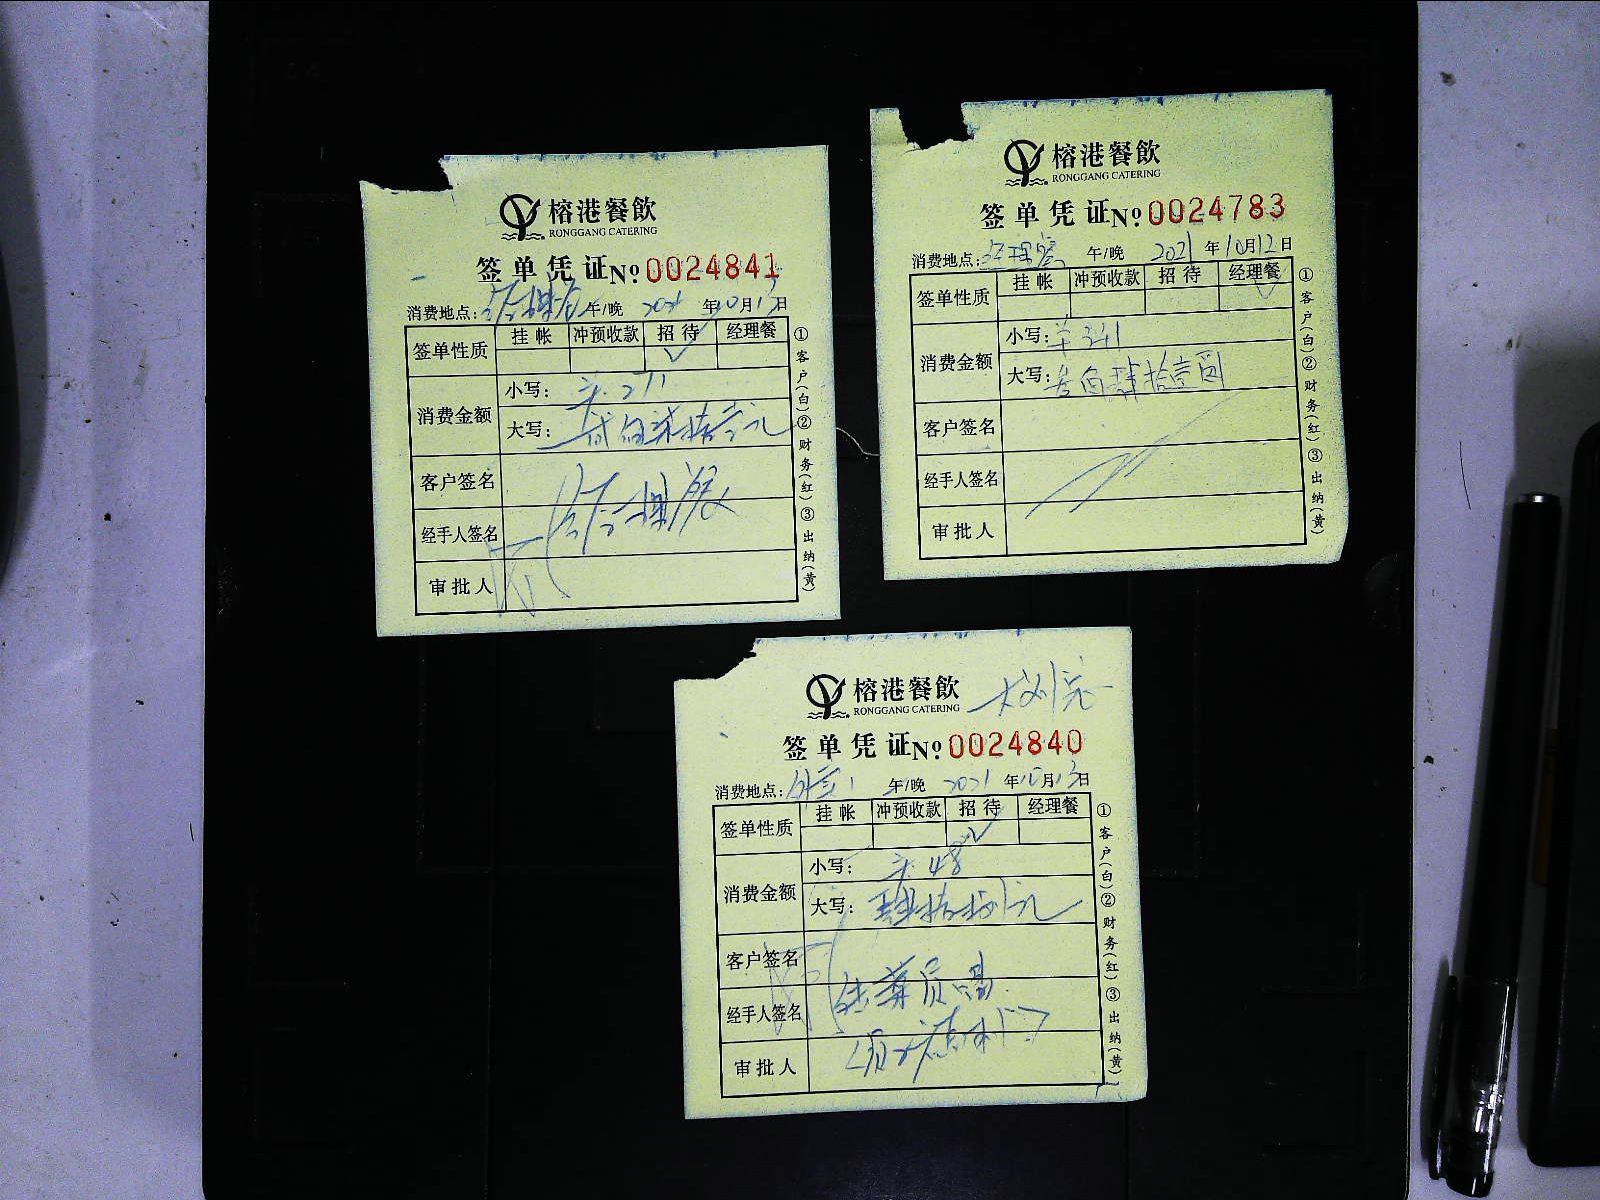 榕港餐飲
RONGGANG CATERING
签单凭证 No 0024841
消费地点: 午/晚 2021 年10月13日
签单性质 挂帐 冲预收款 招待 经理餐
✓
消费金额 小写: 羊:271
大写: 贰佰柒拾壹元
客户签名
经手人签名
审批人
①客户(白)②财务(红)③出纳(黄)
榕港餐飲
RONGGANG CATERING
签单凭证 No 0024783
消费地点: 经理餐 午/晚 2021 年10月12日
签单性质 挂帐 冲预收款 招待 经理餐
✓
消费金额 小写: 羊341
大写: 叁佰肆拾壹圆
客户签名
经手人签名
审批人
①客户(白)②财务(红)③出纳(黄)
榕港餐飲
RONGGANG CATERING
签单凭证 No 0024840
消费地点: 午/晚 2021 年10月13日
签单性质 挂帐 冲预收款 招待 经理餐
✓
消费金额 小写: 羊:48
大写: 肆拾捌元
客户签名
经手人签名
审批人
①客户(白)②财务(红)③出纳(黄)